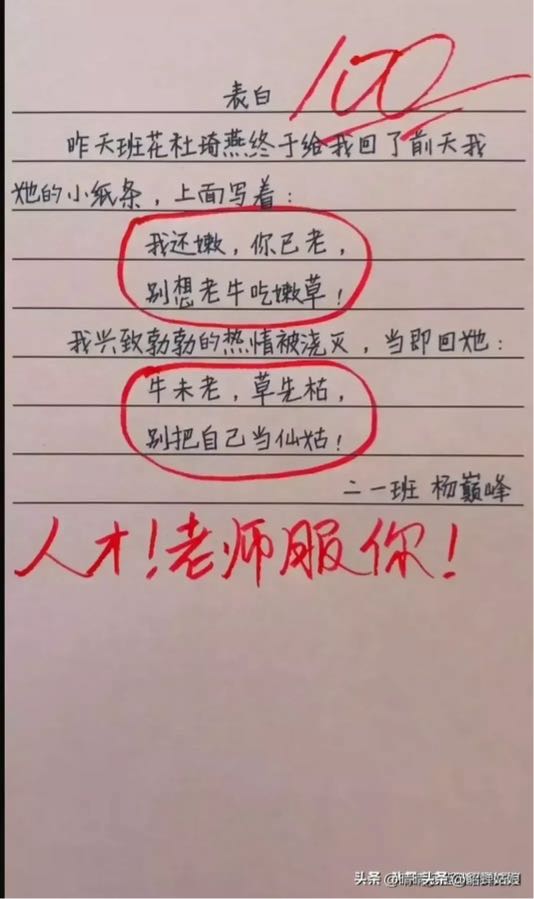 表白
100
昨天班花杜琦燕终于给我回了前天我
她的小纸条，上面写着：
我还嫩，你已老，
别想老牛吃嫩草！
我兴致勃勃的热情被浇灭，当即回她：
牛未老，草先枯，
别把自己当仙姑！
二一班 杨巅峰
人才！老师服你！
头条